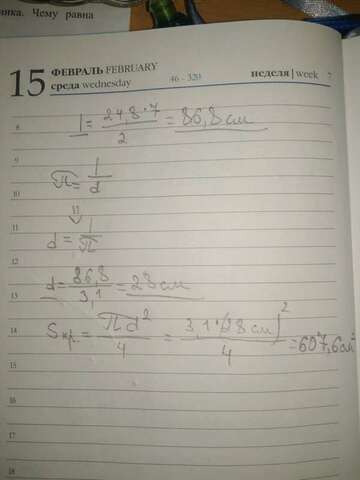 инка. Чему равна
15 ФЕВРАЛЬ FEBRUARY
среда wednesday 46 - 320 неделя | week 7
8 l = 24,8·7 / 2 = 86,8 см
9
10 π = l / d
⇓
11 d = l / π
12
13 d = 86,8 / 3,1 = 28 см
14 Sкр. = πd² / 4 = 3,1·(28 см)² / 4 = 607,6 см²
15
16
17
18